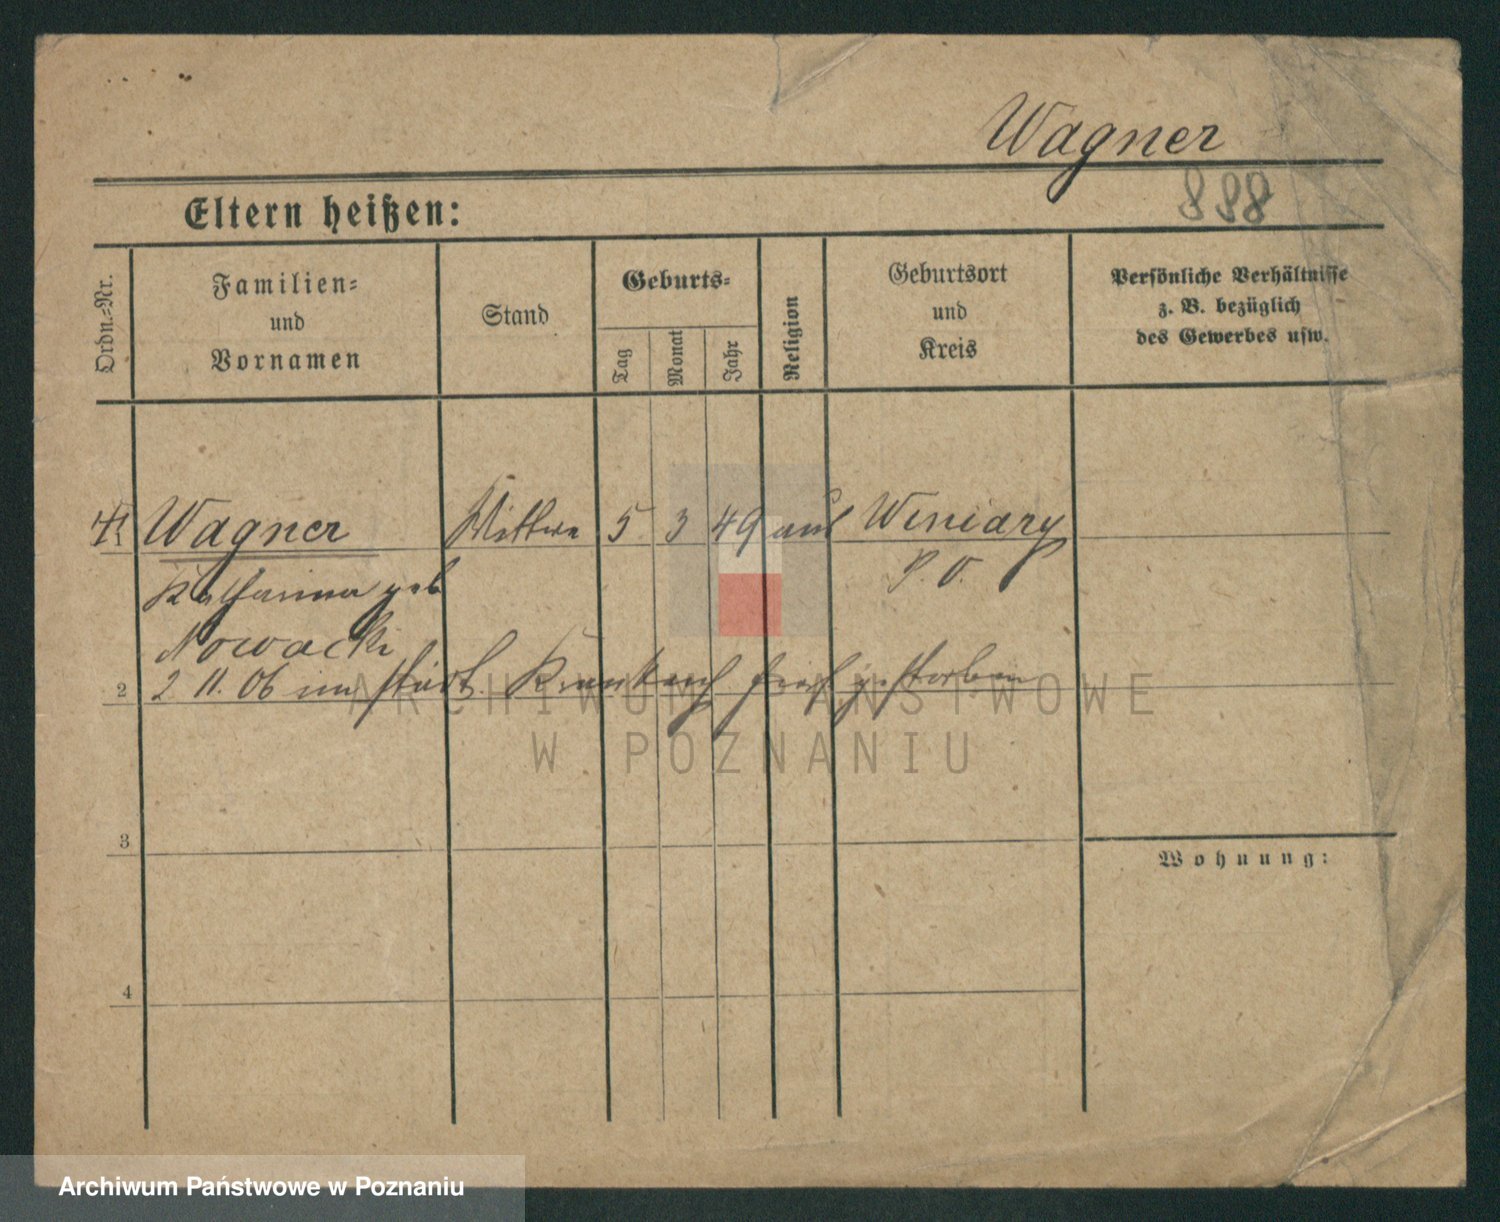 Wagner
888
Eltern heißen:
Ordn.-Nr.
Familien-
und
Vornamen
Stand
Geburts-
Tag
Monat
Jahr
Religion
Geburtsort
und
Kreis
Persönliche Verhältnisse
z. B. bezüglich
des Gewerbes usw.
Wagner Wittwe 5 3 49 Winiary
Katharina geb P. O.
Nowacki
2 2 11. 06 im städt. Krankenh gestorben
3
Wohnung:
4
ARCHIWUM PAŃSTWOWE
W POZNANIU
Archiwum Państwowe w Poznaniu